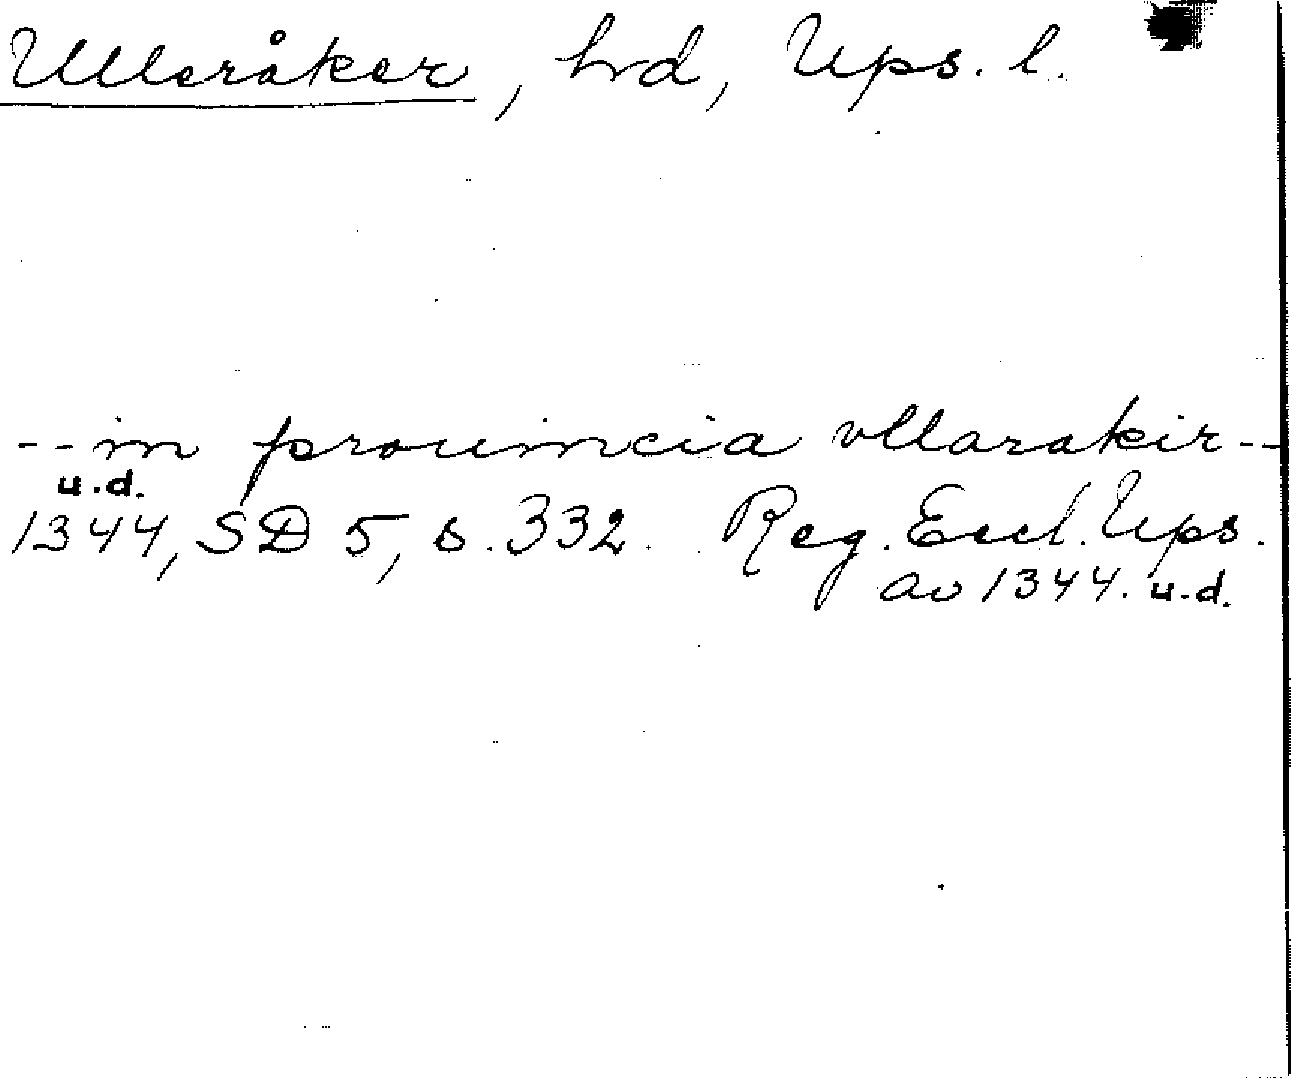 Ulleråker, hrd, Ups. l.
-- in prouincia vllarakir --
u.d.
1344, SD 5, s. 332. Reg. Eccl. Ups.
av 1344. u.d.